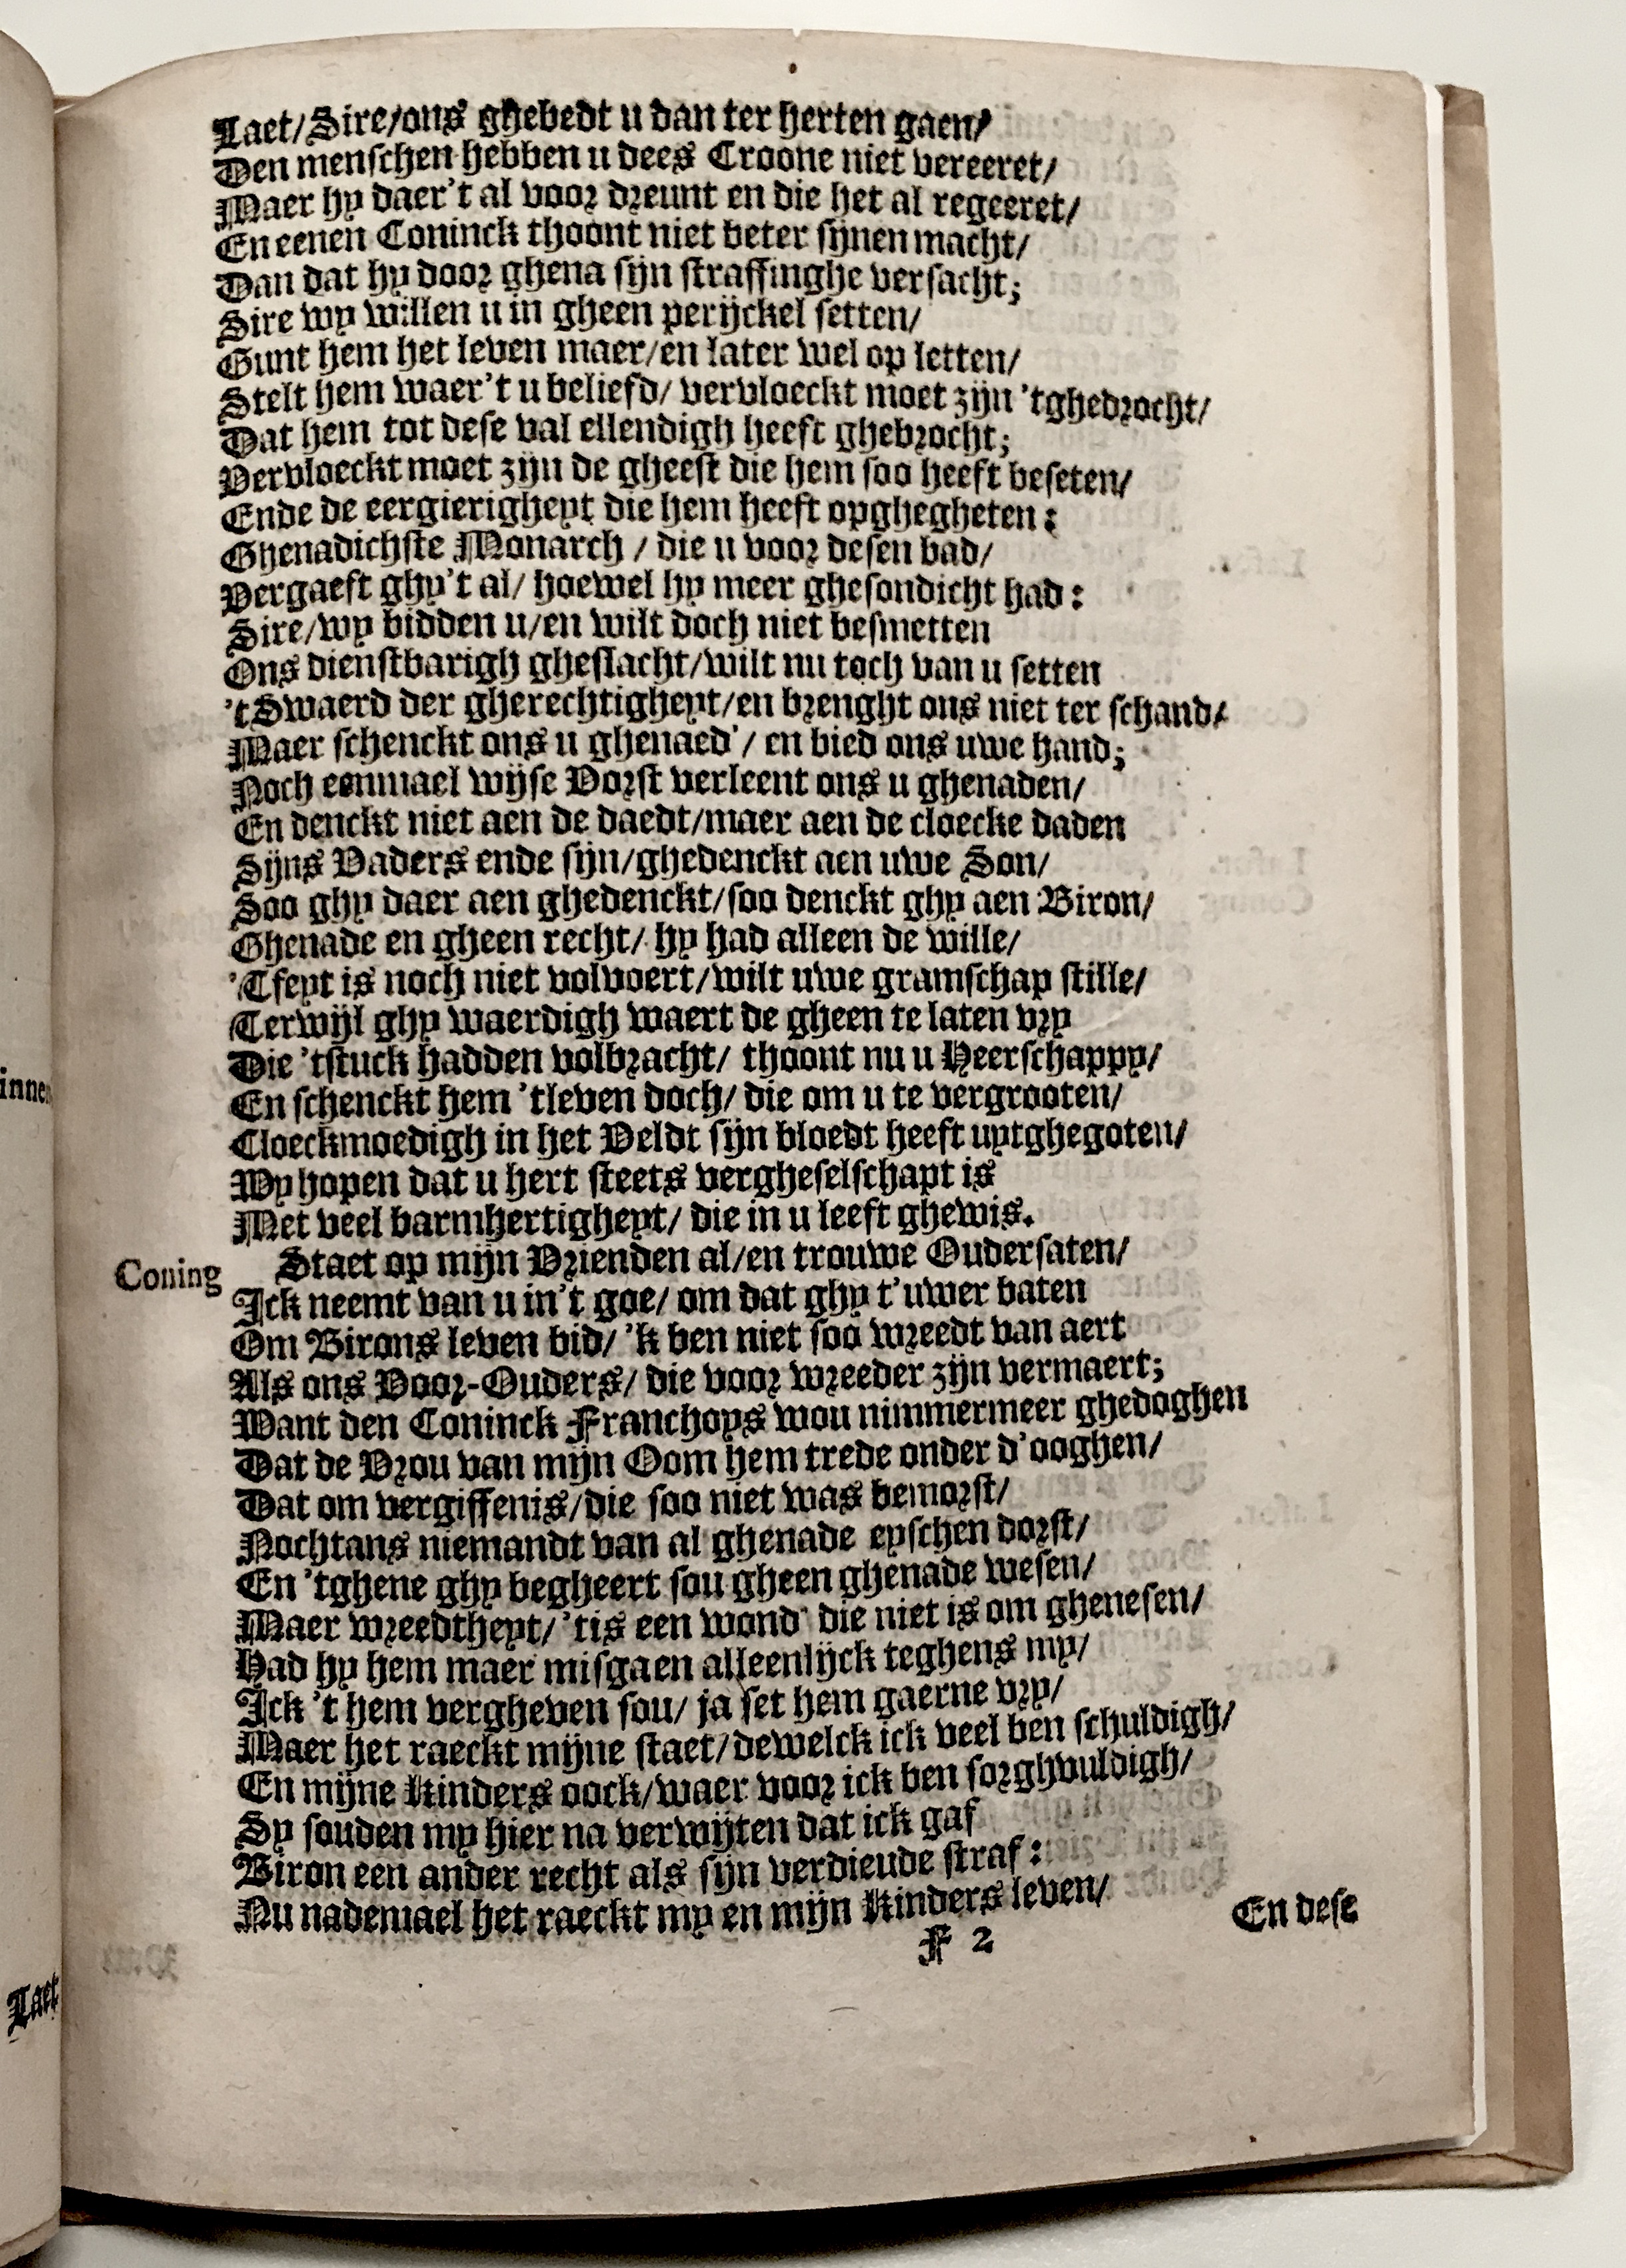 Laet/Sire/ons ghebedt u dan ter herten gaen/
Den menschen hebben u dees Croone niet vereeret/
Maer hy daer't al voor dreunt en die het al regeeret/
En eenen Coninck thoont niet beter sijnen macht/
Dan dat hy door ghena sijn straffinghe versacht;
Sire wy willen u in gheen perijckel setten/
Gunt hem het leven maer/en later wel op letten/
Stelt hem waer't u beliefd/ vervloeckt moet zijn 'tghedrocht/
Dat hem tot dese val ellendigh heeft ghebrocht;
Vervloeckt moet zijn de gheest die hem soo heeft beseten/
Ende de eergierigheyt die hem heeft opghegheten:
Ghenadichste Monarch / die u voor desen bad/
Vergaeft ghy't al/ hoewel hy meer ghesondicht had:
Sire/wy bidden u/en wilt doch niet besmetten
Ons dienstbarigh gheslacht/wilt nu toch van u setten
't Swaerd der gherechtigheyt/en brenght ons niet ter schand/
Maer schenckt ons u ghenaed'/ en bied ons uwe hand;
Noch eenmael wijse Vorst verleent ons u ghenaden/
En denckt niet aen de daedt/maer aen de cloecke daden
Sijns Vaders ende sijn/ghedenckt aen uwe Son/
Soo ghy daer aen ghedenckt/soo denckt ghy aen Biron/
Ghenade en gheen recht/ hy had alleen de wille/
'Tfeyt is noch niet volvoert/wilt uwe gramschap stille/
Terwijl ghy waerdigh waert de gheen te laten vry
Die 'tstuck hadden volbracht/ thoont nu u Heerschappy/
En schenckt hem 'tleven doch/ die om u te vergrooten/
Cloeckmoedigh in het Veldt sijn bloedt heeft uytghegoten/
Wy hopen dat u hert steets vergheselschapt is
Met veel barmhertigheyt/ die in u leeft ghewis.
Coning Staet op mijn Vrienden al/en trouwe Oudersaten/
Ick neemt van u in't goe/ om dat ghy t'uwer baten
Om Birons leven bid/ 'k ben niet soo wreedt van aert
Als ons Voor-Ouders/ die voor wreeder zijn vermaert;
Want den Coninck Franchoys wou nimmermeer ghedoghen
Dat de Vrou van mijn Oom hem trede onder d'ooghen/
Dat om vergiffenis/die soo niet was bemorst/
Nochtans niemandt van al ghenade eyschen dorst/
En 'tghene ghy begheert sou gheen ghenade wesen/
Maer wreedtheyt/ 'tis een wond' die niet is om ghenesen/
Had hy hem maer misgaen alleenlijck teghens my/
Ick 't hem vergheven sou/ ja set hem gaerne vry/
Maer het raeckt mijne staet/dewelck ick veel ben schuldigh/
En mijne kinders oock/waer voor ick ben sorghvuldigh/
Sy souden my hier na verwijten dat ick gaf
Biron een ander recht als sijn verdiende straf:
Nu nademael het raeckt my en mijn kinders leven/
F 2
En dese
inne
Laet